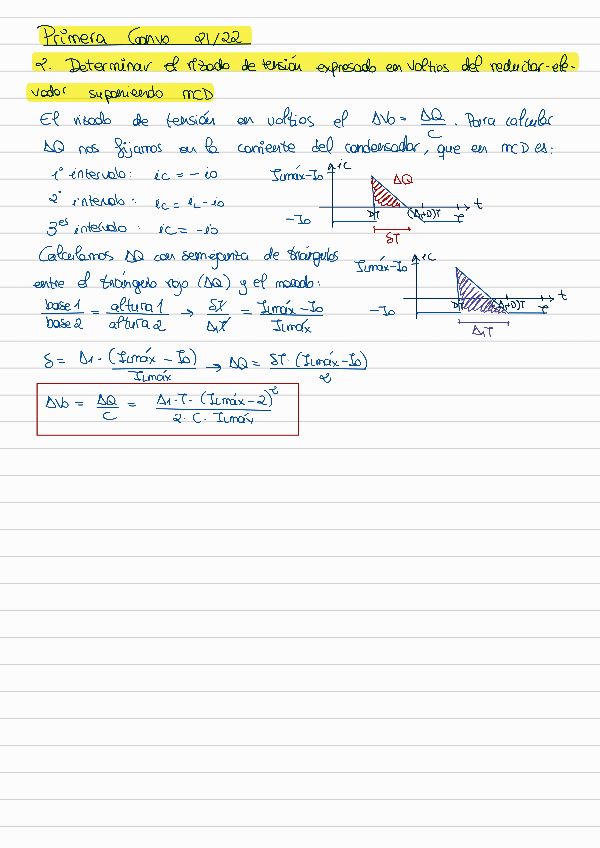 Primera Convo 21/22
2. Determinar el rizado de tensión expresado en voltios del reductor-ele-
vador suponiendo MCD
El rizado de tensión en voltios el ΔVo = ΔQ/C. Para calcular
ΔQ nos fijamos en la corriente del condensador, que en MCD es:
1º intervalo: ic = -io
2º intervalo: ic = iL-io
3er intervalo: ic = -io
ILmáx-Io
ic
ΔQ
-Io
DT
(Δ1+D)T
T
t
δT
Calculamos ΔQ con semejanza de triángulos
entre el triángulo rojo (ΔQ) y el morado:
base 1/base 2 = altura 1/altura 2 → δT/Δ1T = ILmáx-Io/ILmáx
ILmáx-Io
ic
-Io
DT
(Δ1+D)T
T
t
Δ1T
δ = Δ1·(ILmáx - Io)/ILmáx → ΔQ = δT·(ILmáx-Io)/2
ΔVo = ΔQ/C = Δ1·T·(ILmáx-2)²/2·C·ILmáx